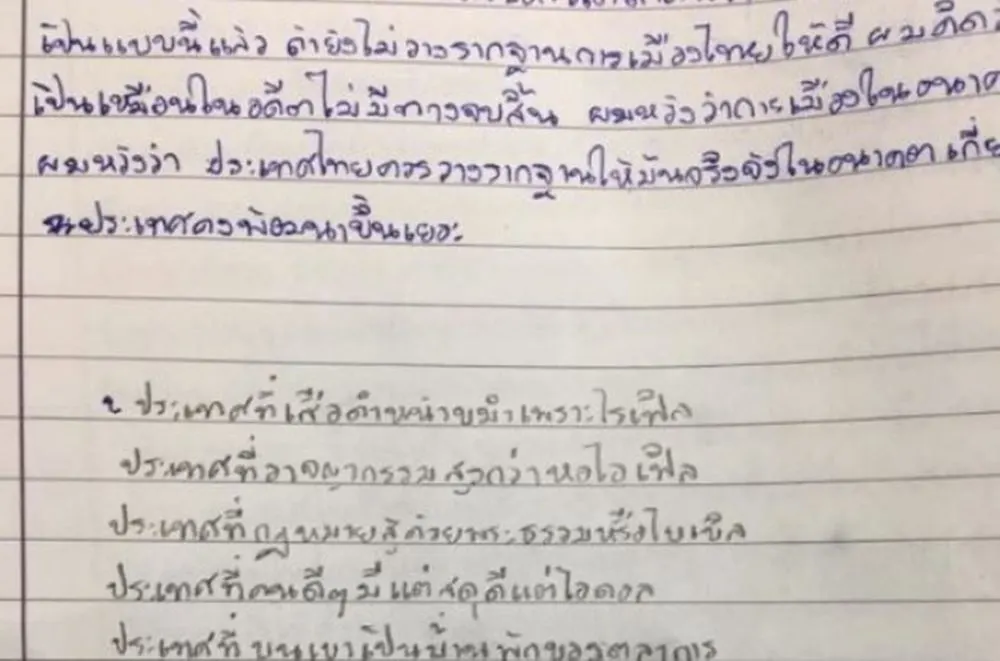 เป็นแบบนี้แล้ว ถ้ายังไม่วางรากฐานการเมืองไทยให้ดี ผมคิด
เป็นเหมือนในอดีตไม่มีทางจบสิ้น ผมหวังว่าการเมืองในอนาค
ผมหวังว่า ประเทศไทยควรวางรากฐานให้มันจริงจังในอนาคต เกี่ย
ประเทศคงพัฒนาขึ้นเยอะ
ประเทศที่เสือดำหน้าขมำเพราะไรเฟิล
ประเทศที่อาจญากรรมสูงกว่าหอไอเฟิล
ประเทศที่กฎหมายสู้ด้วยพระธรรมหรือไบเบิล
ประเทศที่คนดีๆมีแต่สดุดีแต่ไอดอล
ประเทศที่บนเขาเป็นบ้านพักของตุลาการ